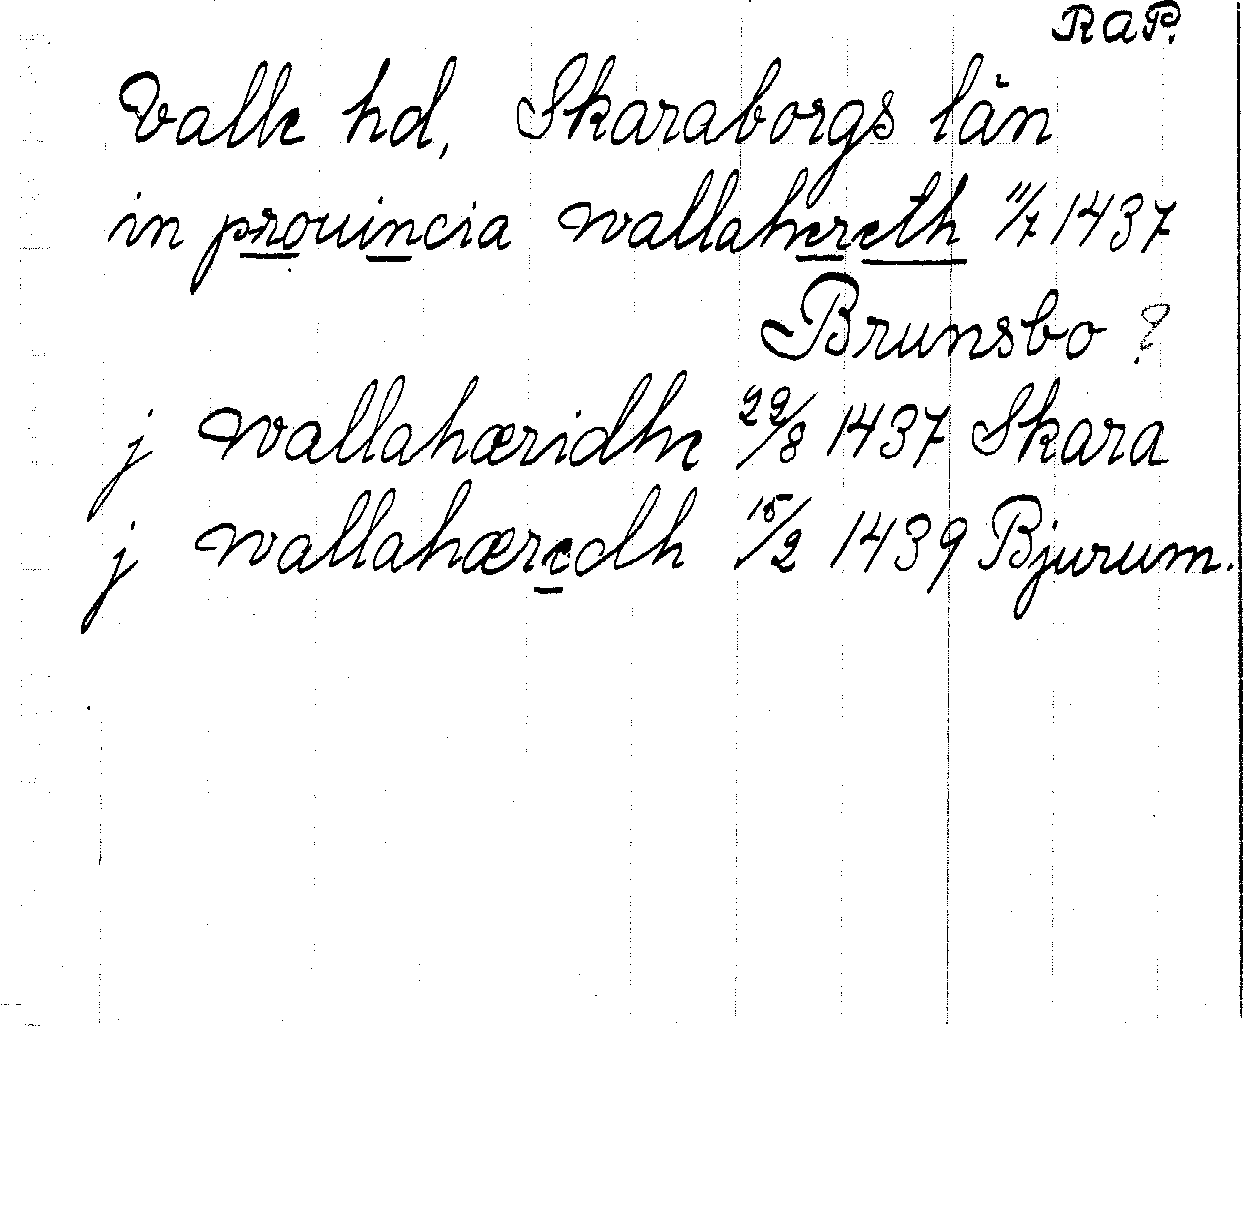 RAP.
Valle hd, Skaraborgs län
in prouincia wallahereth 11/7 1437
Brunsbo ?
j wallahæridhe 29/8 1437 Skara
j wallahæredh 15/2 1439 Bjurum.